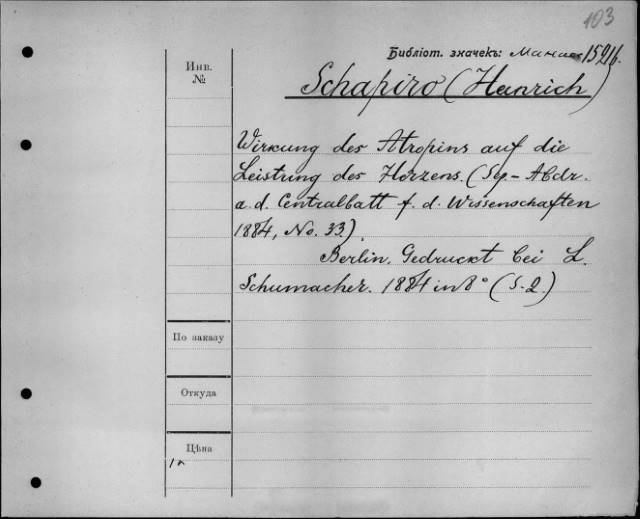 103
Библіот. значекъ: 1521б.
Инв.
№
Schapiro (Heinrich)
Wirkung des Atropins auf die
Leistung des Herzens. (Sep.-Abdr.
a. d. Centralbatt f. d. Wissenschaften
1884, No. 33).
Berlin. Gedruckt bei L.
Schumacher. 1884 in 8° (S. 2.)
По заказу
Откуда
Цѣна